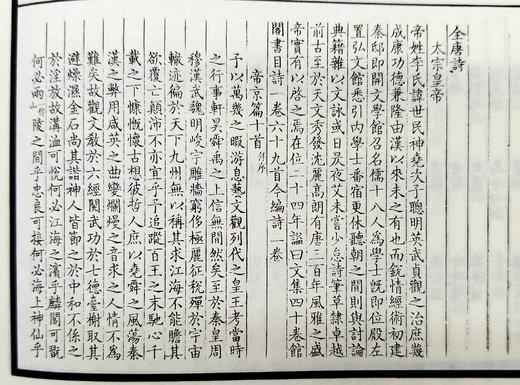 全唐詩
太宗皇帝
帝姓李氏諱世民神堯次子聰明英武貞觀之治庶幾
成康功德兼隆由漢以來未之有也而銳情經術初建
秦邸即開文學館召名儒十八人為學士既即位殿左
置弘文館悉引內學士番宿更休聽朝之間則與討論
典籍雜以文詠或日昃夜艾未嘗少怠詩筆草隸卓越
前古至於天文秀發沈麗高朗有唐三百年風雅之盛
帝實有以啓之焉在位二十四年諡曰文集四十卷館
閣書目詩一卷六十九首今編詩一卷
帝京篇十首并序
予以萬幾之暇游息藝文觀列代之皇王考當時
之行事軒昊舜禹之上信無間然矣至於秦皇周
穆漢武魏明峻宇雕牆窮侈極麗征稅殫於宇宙
轍迹徧於天下九州無以稱其求江海不能贍其
欲覆亡顛沛不亦宜乎予追蹤百王之末馳心千
載之下慷慨懷古想彼哲人庶以堯舜之風蕩秦
漢之弊用咸英之曲變爛熳之音求之人情不為
難矣故觀文教於六經閱武功於七德臺榭取其
避燥濕金石尚其諧神人皆節之於中和不係之
於淫放故溝洫可悅何必江海之濱乎麟閣可翫
何必兩陵之間乎忠良可接何必海上神仙乎